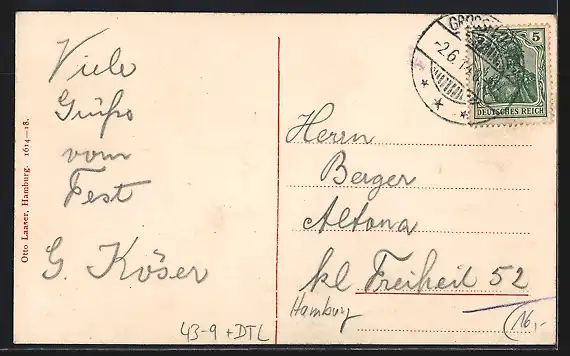 Viele
Grüße
vom
Fest
G. Köser
Otto Laaser, Hamburg. 1614—18.
5
DEUTSCHES REICH
-2.6.14
Herrn
Berger
Altona
kl Freiheit 52
Hamburg
43-9 + DTL
16,-